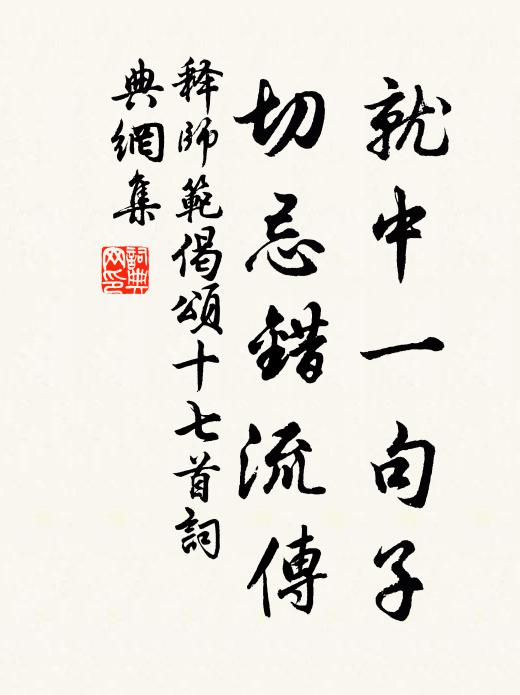 就中一句子
切忌錯流傳
释師範偈頌十七首詞
典網集
詞典
网印